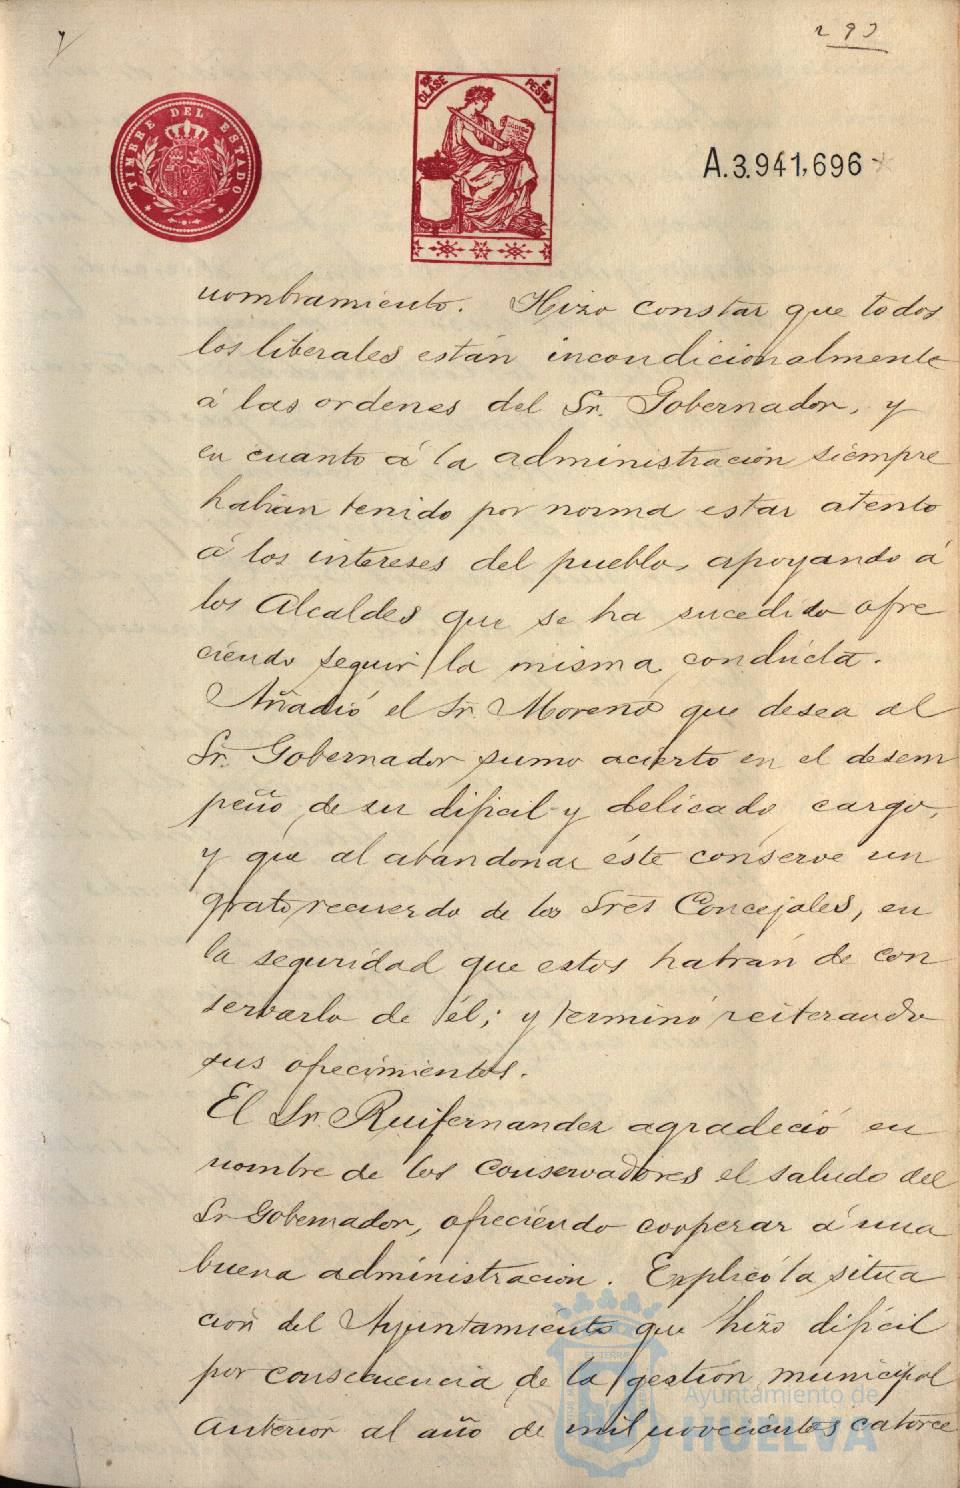 293
TIMBRE DEL ESTADO
CLASE
PESETAS
A.3.941,696
nombramiento. Hizo constar que todos
los liberales están incondicionalmente
á las ordenes del Sr. Gobernador, y
en cuanto á la administración siempre
habian tenido por norma estar atento
á los intereses del pueblo, apoyando á
los Alcaldes que se ha sucedido ofre
ciendo seguir la misma conducta.
Añadió el Sr. Moreno que desea al
Sr. Gobernador sumo acierto en el desem
peño de su dificil y delicado cargo,
y que al abandonar éste conserve un
grato recuerdo de los Sres Concejales, en
la seguridad que estos habrán de con
servarlo de él; y terminó reiterando
sus ofrecimientos.
El Sr. Ruifernandez agradeció en
nombre de los conservadores el saludo del
Sr Gobernador, ofreciendo cooperar á una
buena administración. Explicó la situa
ción del Ayuntamiento que hizo dificil
por consecuencia de la gestión municipal
anterior al año de mil novecientos catorce
Ayuntamiento de
HUELVA